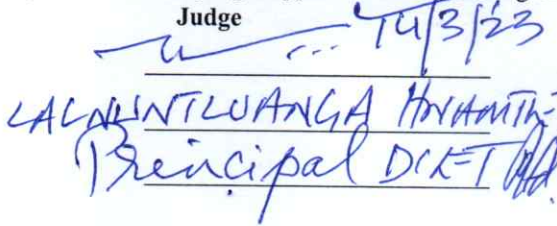 Judge
14/3/23
LALNUNTLUANGA HNAMTE
Principal DIET